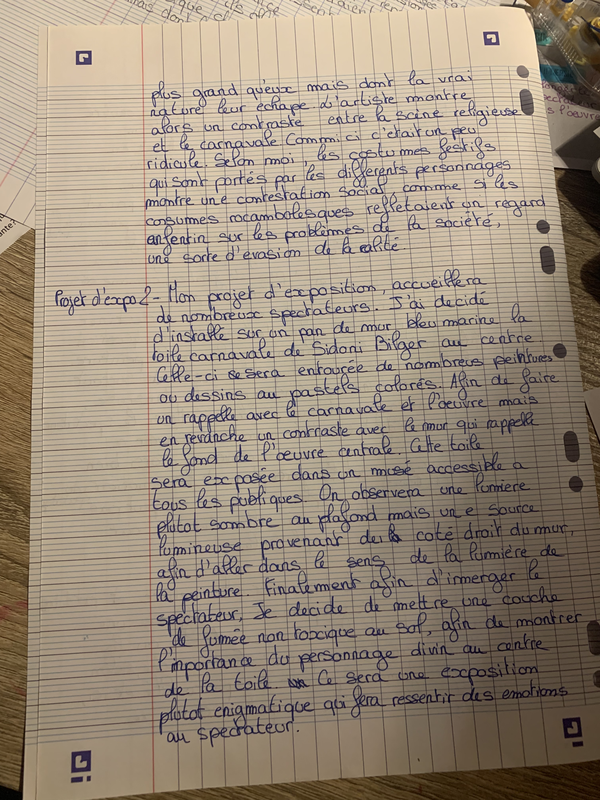 plus grand qu'eux mais dont la vrai
nature leur échape. L'artiste montre
alors un contraste entre la scène religieuse
et le carnavale comme ci c'était un peu
ridicule. Selon moi, les costumes festifs
qui sont portés par les différents personnages
montre une contestation social, comme si les
consumes rocambolesques refletaient un regard
enfentin sur les problèmes de la société,
une sorte d'evasion de la réalité.
Projet d'expo 2 - Mon projet d'exposition, accueillera
de nombreux spectateurs. J'ai decidé
d'installé sur un pan de mur bleu marine la
toile carnavale de Sidoni Bilger au centre
Celle-ci se sera entourée de nombreus peintures
ou dessins au pastels colorés. Afin de faire
un rappelle avec le carnavale et l'oeuvre mais
en revanche un contraste avec le mur qui rappelle
le fond de l'oeuvre centrale. Cette toile
sera exposée dans un musé accessible a
tous les publiques. On observera une lumiere
plutot sombre au plafond mais une source
lumineuse provenant du coté droit du mur,
afin d'aller dans le sens de la lumière de
la peinture. Finalement afin d'immerger le
spectateur, Je decide de mettre une couche
de fumée non toxique au sol, afin de montrer
l'importance du personnage divin au centre
de la toile. Ce sera une exposition
plutot enigmatique qui fera ressentir des emotions
au spectateur.